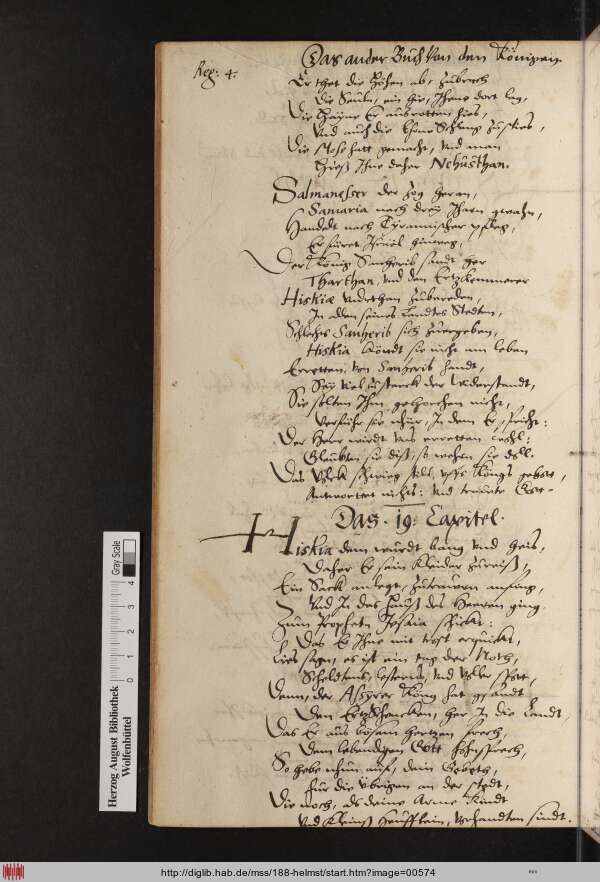 Das ander Buch Von den Königen
Reg: 4.
Er thet die Höhen ab, Zubrach
Die Seule, ein hie, Jhene dort lag,
Die Hayne Er außrotten hies,
Vnd auch die Ehrne Schlang Zusties,
Die Mose hatt gemacht, Vnd man
Hieß Jhne daher Nehusthan.
Salmanesser der Zog heran,
Samaria nach drey Jharn gwahn,
Handelt nach Tyrannischer pfleg,
Er füret Jsrael hinweg,
Der König Sanherib sandt her
Tharthan, Vnd den Ertzkemmerer
Hiskiæ Vndrthan Zubereden,
Jn allen seines Landtes Stedten,
Sanherib sich Zuergeben,
Hiskia köndt sie nicht am leben
Erretten, Von Sanheribs handt,
Sey viel Zustarck der Widerstandt,
Sie solten Jhm gehorchen nicht,
Verführ sie nhur, Jn dem Er spricht:
Der Herr wirdt Vns erretten wohl:
Glaubten sie diß, so wehrn sie doll.
Das Volck schwieg still, Vffs Königs gebott,
Antwortet nichts: Vnd trauete Gott.
Das. 19: Capitel.
Hiskia dem wurdt bang Vnd heis,
Daher Er sein Kleider Zureiß,
Ein Sack anlegt, Zutrauern anfing,
Vnd Jn das Hauß des Herren ging.
Zum Prophetn Jesaia schickt:
Das Er Jhne mit trost erquickt,
Ließ sagn, es ist ein tag der Noth,
Scheldtens, lesterns, Vnd voller spott,
Denn, der Aßyrer König hat gsandt
Den Ertzschencken, her Jn die Landt
Das Er aus bösem hertzen sprech,
Dem lebendigen Gott hohnsprech,
So hebe nhun auf, dein Gebeth,
Für die vbrigen an der stedt,
Die noch, als deine Arme Kindt
Vnd kleinst heufflein, Vorhandten sindt.
Herzog August Bibliothek
Wolfenbüttel
Gray Scale
0 1 2 3 4
http://diglib.hab.de/mss/188-helmst/start.htm?image=00574